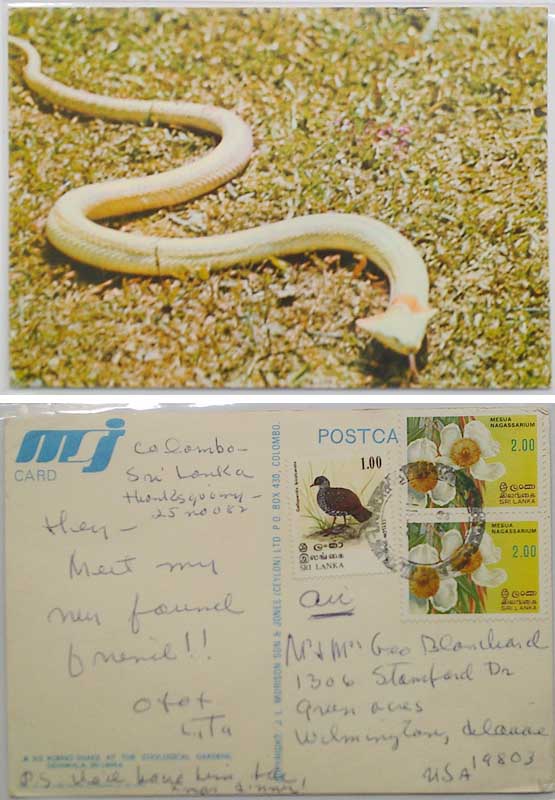 msj
CARD
POSTCA
Colombo-
Sri Lanka
Thanksgiving-
25 Nov 82
Hey-
Meet my
new found
friend!!
OXOX
Lita
A
KING SNAKE AT THE ZOOLOGICAL GARDENS,
DEHIWALA, SRI LANKA
P.S. We'll have him for
Xmas dinner!
COPYRIGHT J. L. MORISON SON & JONES (CEYLON) LTD P.O. BOX 430, COLOMBO.
1.00
Galloperdix bicalcarata
ශ්‍රී ලංකා
இலங்கை
SRI LANKA
MESUA
NAGASSARIUM
2.00
ශ්‍රී ලංකා
இலங்கை
SRI LANKA
MESUA
NAGASSARIUM
2.00
ශ්‍රී ලංකා
இலங்கை
SRI LANKA
air
Mr & Mrs Geo Blanchard
1306 Stamford Dr
Green acres
Wilmington, Delaware
19803
USA